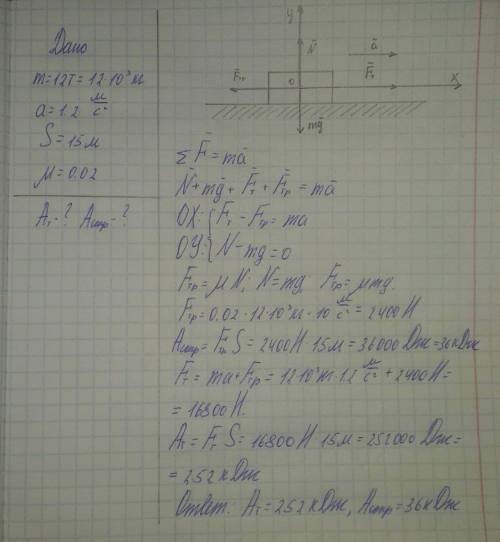 Дано
m=12т=12·10³кг
a=1.2 м/с²
S=15м
μ=0.02
Aт-? Aтр-?
y
N⃗
a⃗
F⃗тр
0
F⃗т
x
mg⃗
ΣF⃗=ma⃗
N⃗+mg⃗+F⃗т+F⃗тр=ma⃗
OX: Fт-Fтр=ma
OY: N-mg=0
Fтр=μN; N=mg; Fтр=μmg.
Fтр=0.02·12·10³кг·10 м/с²=2400Н
Aтр=FтрS=2400Н·15м=36000Дж=36кДж
Fт=ma+Fтр=12·10³кг·1.2 м/с²+2400Н=
=16800Н.
Aт=FтS=16800Н·15м=252000Дж=
=252кДж
Ответ. Aт=252кДж, Aтр=36кДж